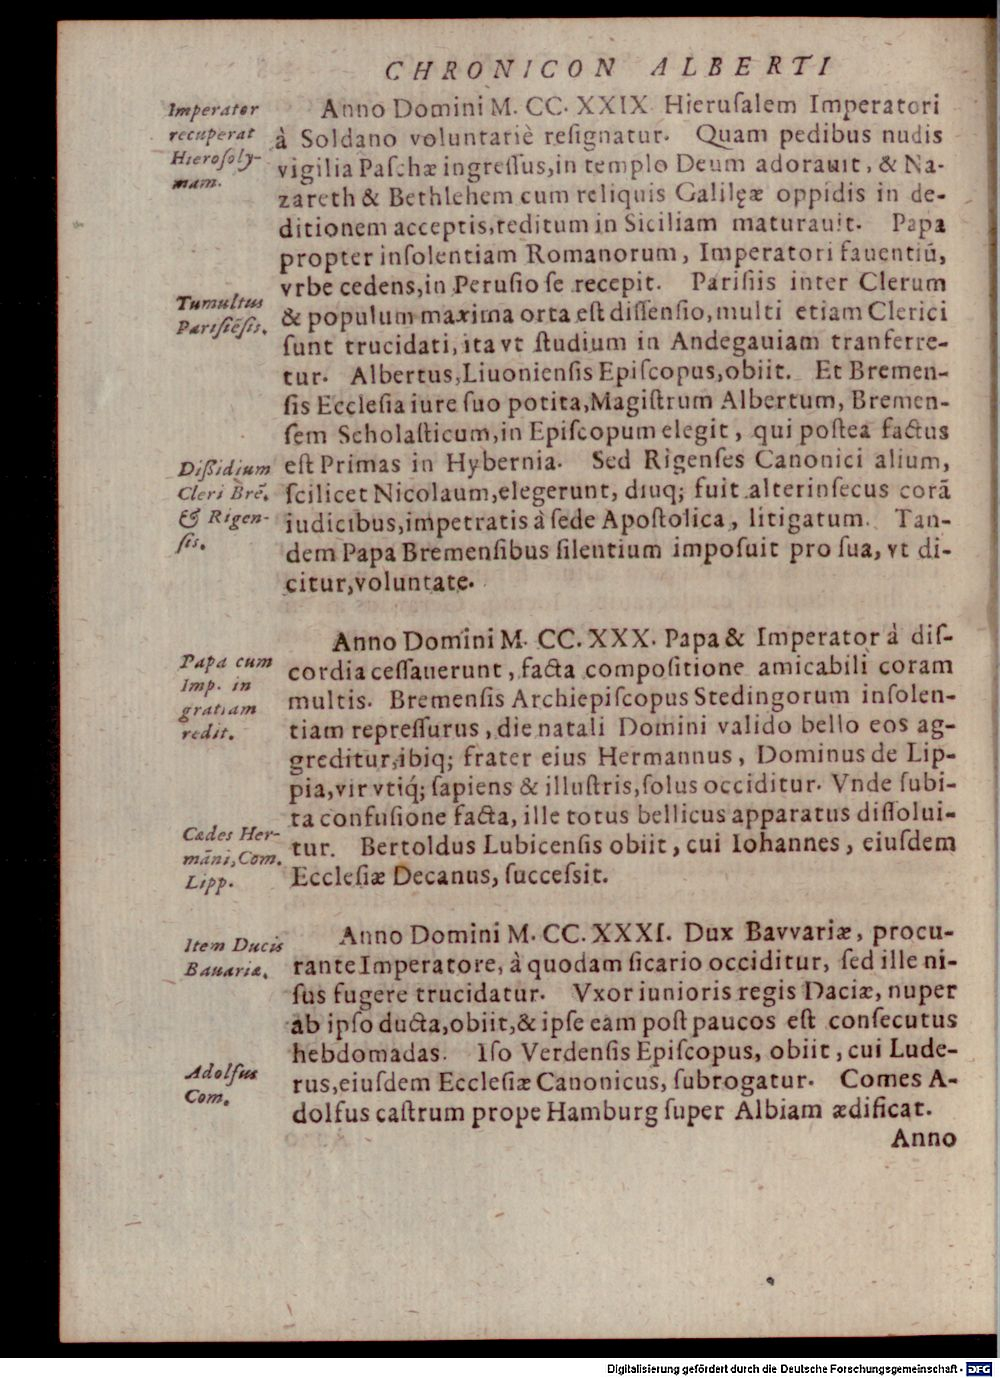 CHRONICON ALBERTI
Imperator
recuperat
Hierosoly-
mam.
Anno Domini M. CC. XXIX Hieruſalem Imperatori
à Soldano voluntariè reſignatur. Quam pedibus nudis
vigilia Paſchæ ingreſſus, in templo Deum adorauit, & Na-
zareth & Bethlehem cum reliquis Galilęæ oppidis in de-
ditionem acceptis, reditum in Siciliam maturauit. Papa
propter inſolentiam Romanorum, Imperatori fauentiū,
vrbe cedens, in Peruſio ſe recepit. Pariſiis inter Clerum
Tumultus
Pariſiēſis.
& populum maxima orta eſt diſſenſio, multi etiam Clerici
ſunt trucidati, ita vt ſtudium in Andegauiam tranferre-
tur. Albertus, Liuonienſis Epiſcopus, obiit. Et Bremen-
ſis Eccleſia iure ſuo potita, Magiſtrum Albertum, Bremen-
ſem Scholaſticum, in Epiſcopum elegit, qui poſtea factus
Diſſidium
Cleri Brē.
& Rigen-
ſis.
eſt Primas in Hybernia. Sed Rigenſes Canonici alium,
ſcilicet Nicolaum, elegerunt, diuq; fuit alterinſecus corā
iudicibus, impetratis à ſede Apoſtolica, litigatum. Tan-
dem Papa Bremenſibus ſilentium impoſuit pro ſua, vt di-
citur, voluntate.
Papa cum
Imp. in
gratiam
redit.
Anno Domini M. CC. XXX. Papa & Imperator à diſ-
cordia ceſſauerunt, facta compoſitione amicabili coram
multis. Bremenſis Archiepiſcopus Stedingorum inſolen-
tiam repreſſurus, die natali Domini valido bello eos ag-
greditur, ibiq; frater eius Hermannus, Dominus de Lip-
pia, vir vtiq́; ſapiens & illuſtris, ſolus occiditur. Vnde ſubi-
ta confuſione facta, ille totus bellicus apparatus diſſolui-
Cædes Her-
māni, Com.
Lipp.
tur. Bertoldus Lubicenſis obiit, cui Iohannes, eiuſdem
Eccleſiæ Decanus, ſucceſsit.
Item Ducis
Bauariæ.
Anno Domini M. CC. XXXI. Dux Bavvariæ, procu-
rante Imperatore, à quodam ſicario occiditur, ſed ille ni-
ſus fugere trucidatur. Vxor iunioris regis Daciæ, nuper
ab ipſo ducta, obiit, & ipſe eam poſt paucos eſt conſecutus
hebdomadas. Iſo Verdenſis Epiſcopus, obiit, cui Lude-
Adolfus
Com.
rus, eiuſdem Eccleſiæ Canonicus, ſubrogatur. Comes A-
dolfus caſtrum prope Hamburg ſuper Albiam ædificat.
Anno
Digitalisierung gefördert durch die Deutsche Forschungsgemeinschaft - DFG